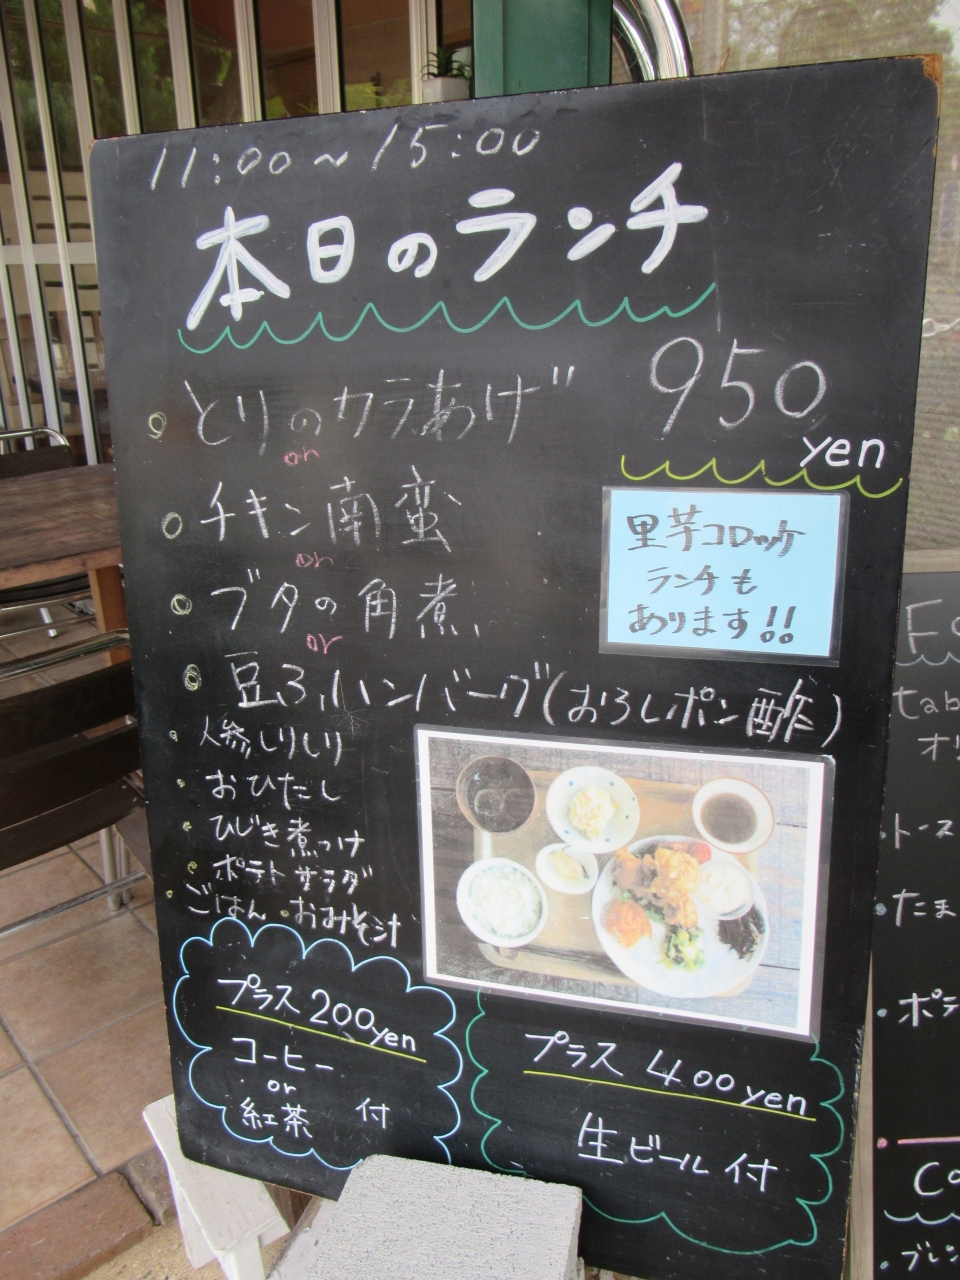 11:00～15:00
本日のランチ
950
yen
とりのカラあげ
or
チキン南蛮
or
ブタの角煮
or
豆ふハンバーグ(おろしポン酢)
里芋コロッケ
ランチも
あります!!
人参しりしり
おひたし
ひじき煮つけ
ポテトサラダ
ごはん・おみそ汁
プラス200yen
コーヒー
or
紅茶 付
プラス 400yen
生ビール付
トース
たま
ポテ